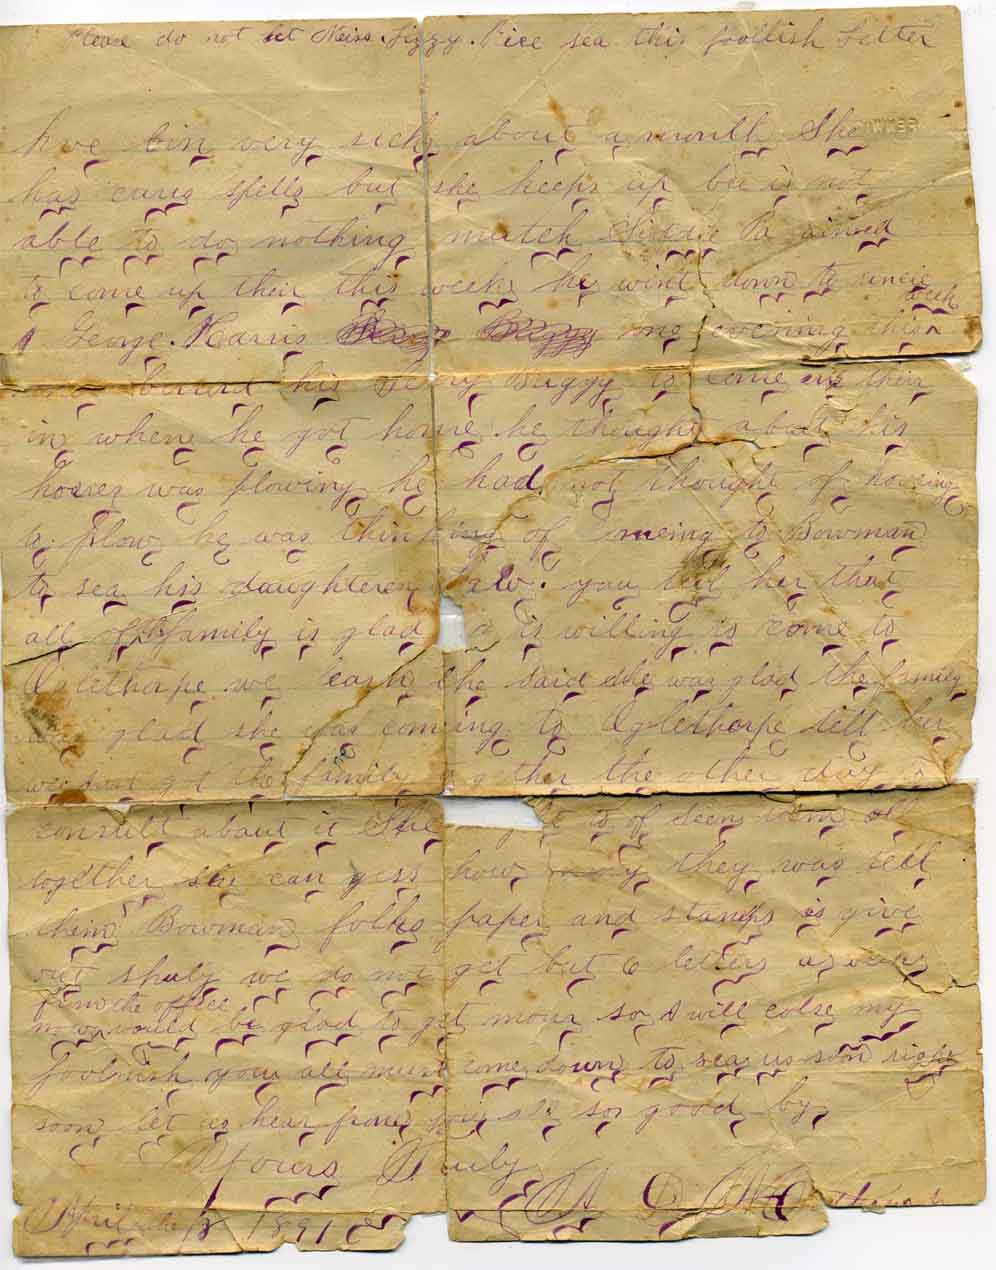 Please do not let Miss. Lizzy. Rice sea this foollish Letter
have bin very sick about a month She
has curus spells but she keeps up bee is not
able to do nothing mutch Pa aimed
to come up their this week he wint down to uncle
George. Harris one evening this week
his Buggy to come in their
in where he got home he thought about his
horses was plowing he had not thought of having
a plow he was thinking of to Bowman
to sea his daughteren law. you tell her that
all of family is glad is willing to come to
Oglethorpe we she said she was glad the family
glad she was coming to Oglethorpe tell her
we got the family to gether the other day
consult about it She to of Seen them all
together she can gess how many they was tell
them Bowman folks paper and stamps is give
out we do not get but 6 letters
from the office
now would be glad to get mour so I will colse my
foolish you all must come down to sea us son right
soon let us hear from you so good by
Yours Truly
April the 18 1891